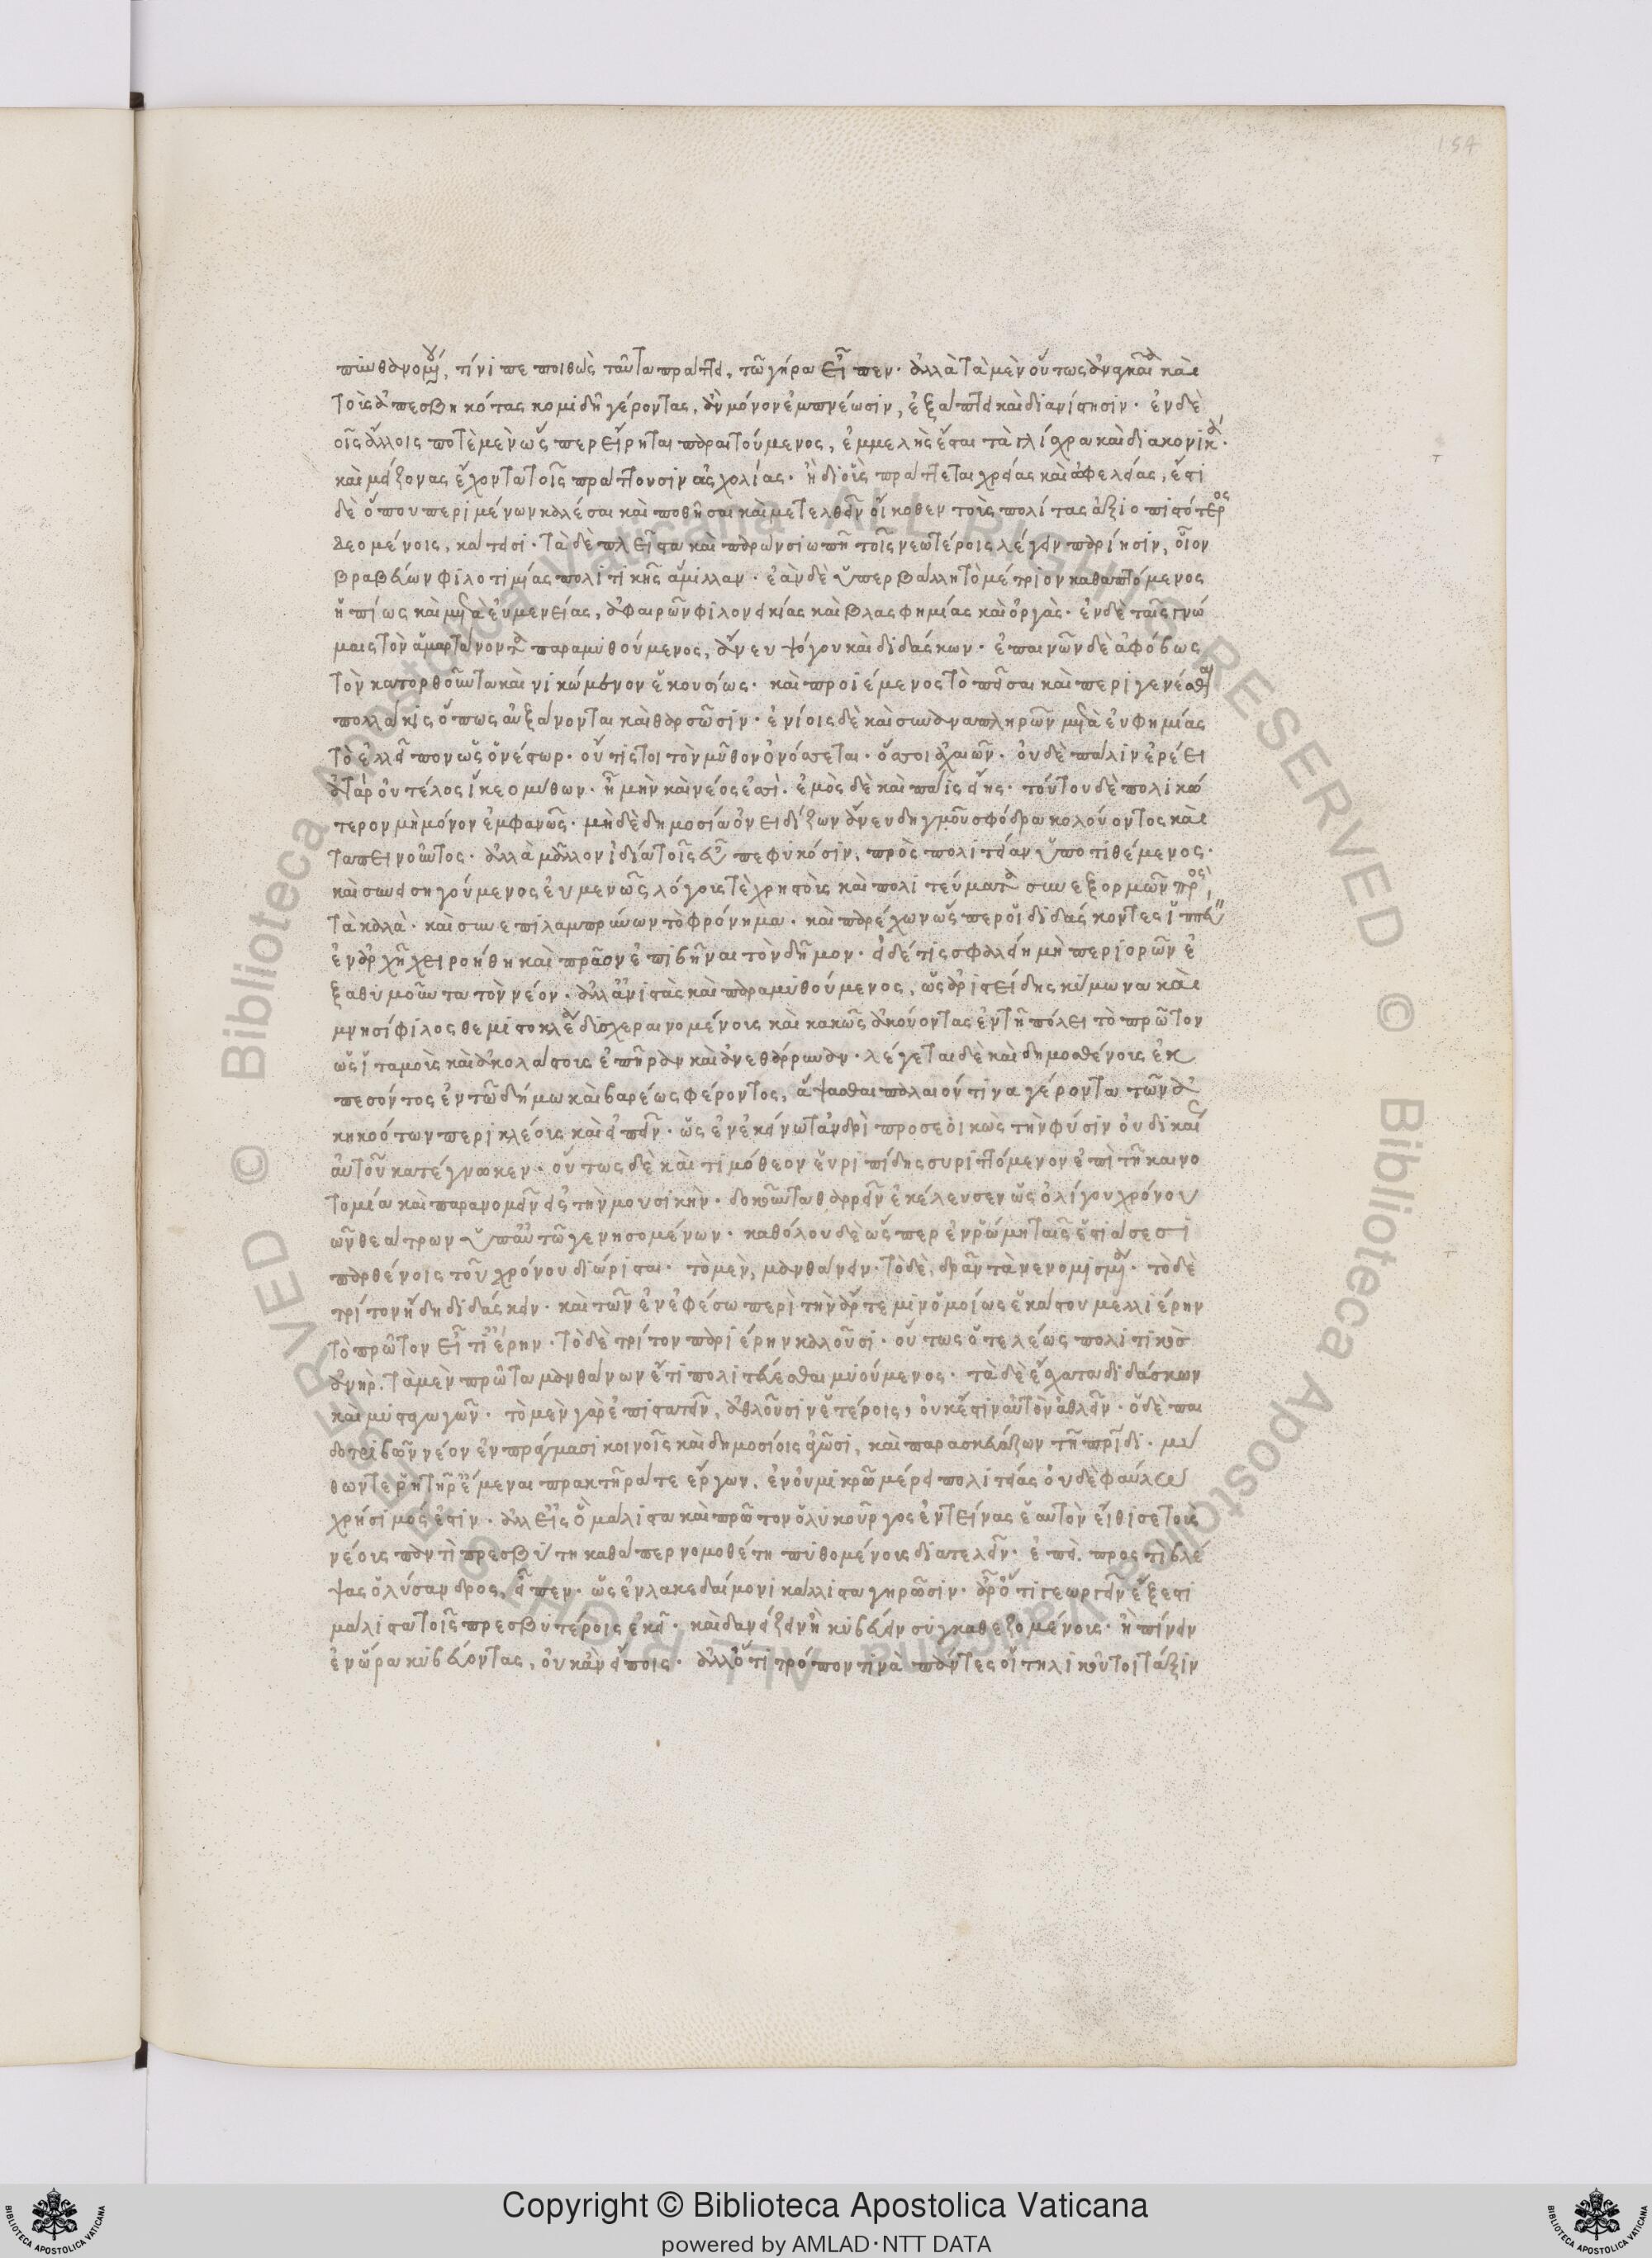 154
πυνθανομένου, τίνι πεποιθὼς ταῦτα πράττει, τῶ γήρα εἶπεν· ἀλλὰ τὰ μὲν οὕτως ἀναγκαῖα καὶ
τοὺς ἀπεσβηκότας κομιδῆ γέροντας, ἂν μόνον ἐμπνέωσιν, ἐξάπτει καὶ διανίστησιν· ἐν δὲ
οἷς ἄλλοις ποτὲ μὲν ὥσπερ εἴρηται παραιτούμενος, ἐμμελὴς ἔσται τὰ γλίσχρα καὶ διακονικὰ·
καὶ μείζονας ἔχοντα τοῖς πράττουσιν ἀσχολίας· ἢ δι' οὓς πράττεται χρείας καὶ ὠφελείας, ἔστι
δὲ ὅπου περιμένων καλέσαι καὶ ποθῆσαι καὶ μετελθεῖν οἴκοθεν τοὺς πολίτας ἀξιοπιστότερος
δεομένοις, κάτεισι· τὰ δὲ πλεῖστα καὶ παρὼν σιωπῆ τοῖς νεωτέροις λέγειν παρίησιν, οἷον
βραβεύων φιλοτιμίας πολιτικῆς ἅμιλλαν· ἐὰν δὲ ὑπερβάλλη τὸ μέτριον καθαπτόμενος
ἠπίως καὶ μετὰ εὐμενείας, ἀφαιρῶν φιλονεικίας καὶ βλασφημίας καὶ ὀργὰς· ἐν δὲ ταῖς γνώ
μαις τὸν ἁμαρτάνοντα παραμυθούμενος, ἄνευ ψόγου καὶ διδάσκων· ἐπαινῶν δὲ ἀφόβως
τὸν κατορθοῦντα καὶ νικώμενον ἑκουσίως· καὶ προϊέμενος τὸ πεῖσαι καὶ περιγενέσθαι
πολλάκις ὅπως αὐξάνονται καὶ θαρσῶσιν· ἐνίοις δὲ καὶ συναναπληρῶν μετὰ εὐφημίας
τὸ ἐλλεῖπον ὡς ὁ νέστωρ· οὔτις τοι τὸν μῦθον ὀνόσσεται· ὅσσοι ἀχαιῶν· οὐδὲ πάλιν ἐρέει
ἀτὰρ οὐ τέλος ἵκεο μύθων· ἦ μὴν καὶ νέος ἐσσὶ· ἐμὸς δὲ καὶ πάϊς εἴης· τούτου δὲ πολιτικώ
τερον μὴ μόνον ἐμφανῶς· μὴ δὲ δημοσία ὀνειδίζων ἄνευ δηγμοῦ σφόδρα κολούοντος καὶ
ταπεινοῦντος· ἀλλὰ μᾶλλον ἰδία τοῖς εὖ πεφυκόσιν, πρὸς πολιτείαν ὑποτιθέμενος·
καὶ συνεισηγούμενος εὐμενῶς λόγους τὲ χρηστοὺς καὶ πολιτεύματα συνεξορμῶν πρὸς
τὰ καλὰ· καὶ συνεπιλαμπρύνων τὸ φρόνημα· καὶ παρέχων ὥσπερ οἱ διδάσκοντες ἱππεύειν
ἐν ἀρχῆ χειροήθη καὶ πρᾶον ἐπιβῆναι τὸν δῆμον· εἰ δέ τι σφαλείη μὴ περιορῶν ἐ
ξαθυμοῦντα τὸν νέον· ἀλλ' ἀνιστὰς καὶ παραμυθούμενος, ὡς ἀριστείδης κίμωνα καὶ
μνησίφιλος θεμιστοκλέα δυσχεραινομένους καὶ κακῶς ἀκούοντας ἐν τῆ πόλει τὸ πρῶτον
ὡς ἰταμοὺς καὶ ἀκολάστους ἐπῆραν καὶ ἀνεθάρρυναν· λέγεται δὲ καὶ δημοσθένους ἐκ
πεσόντος ἐν τῶ δήμω καὶ βαρέως φέροντος, ἅψασθαι παλαιόν τινα γέροντα τῶν ἀ
κηκοότων περικλέους καὶ εἰπεῖν· ὡς ἐν ἐκείνω τἀνδρὶ προσεοικὼς τὴν φύσιν οὐ δικαίως
αὑτοῦ κατέγνωκεν· οὕτως δὲ καὶ τιμόθεον εὐριπίδης συριττόμενον ἐπὶ τῆ καινο
τομία καὶ παρανομεῖν εἰς τὴν μουσικὴν· δοκοῦντα θαρρεῖν ἐκέλευσεν ὡς ὀλίγου χρόνου
ὧν θεάτρων ὑπ' αὐτῶ γενησομένων· καθόλου δὲ ὥσπερ ἐν ῥώμη ταῖς ἑστιάσεσι
παρθένοις τοῦ χρόνου διώρισται· τὸ μὲν, μανθάνειν· τὸ δὲ, δρᾶν τὰ νενομισμένα· τὸ δὲ
τρίτον ἤδη διδάσκειν· καὶ τῶν ἐν ἐφέσω περὶ τὴν ἄρτεμιν ὁμοίως ἑκάστου μελλιέρην
τὸ πρῶτον εἶτ' ἱέρην· τὸ δὲ τρίτον παριέρην καλοῦσι· οὕτως ὁ τελέως πολιτικὸς
ἀνὴρ· τὰ μὲν πρῶτα μανθάνων ἔτι πολιτεύεσθαι μυούμενος· τὰ δὲ ἔσχατα διδάσκων
καὶ μυσταγωγῶν· τὸ μὲν γὰρ ἐπιστατεῖν, ἀθλοῦσιν ἑτέροις, οὐκ ἔστιν αὐτὸν ἀθλεῖν· ὁ δὲ παι
δοτριβῶν νέον ἐν πράγμασι κοινοῖς καὶ δημοσίοις ἀγῶσι, καὶ παρασκευάζων τῆ πατρίδι· μύ
θων τε ῥητῆρ' ἔμεναι πρακτῆρά τε ἔργων, ἐν οὐ μικρῶ μέρει πολιτείας οὐδὲ φαύλω
χρήσιμός ἐστιν· ἀλλ' εἰς ὃ μάλιστα καὶ πρῶτον ὁ λυκοῦργος ἐντείνας ἑαυτὸν εἴθισε τοὺς
νέους παντὶ πρεσβύτη καθάπερ νομοθέτη πυθομένους διατελεῖν· ἐπεὶ· προς τί βλέ
ψας ὁ λύσανδρος, εἶπεν· ὡς ἐν λακεδαίμονι κάλλιστα γηρῶσιν· ἆρ' ὅτι γεωργεῖν ἔξεστι
μάλιστα τοῖς πρεσβυτέροις ἐκεῖ· καὶ δανείζειν ἢ κυβεύειν συγκαθεζομένους· ἢ πίνειν
ἐν ὥρα κυβεύοντας, οὐκ ἂν εἴποις· ἀλλ' ὅτι τρόπον τινὰ πάντες οἱ τηλικοῦτοι τάξιν
Copyright © Biblioteca Apostolica Vaticana
powered by AMLAD·NTT DATA